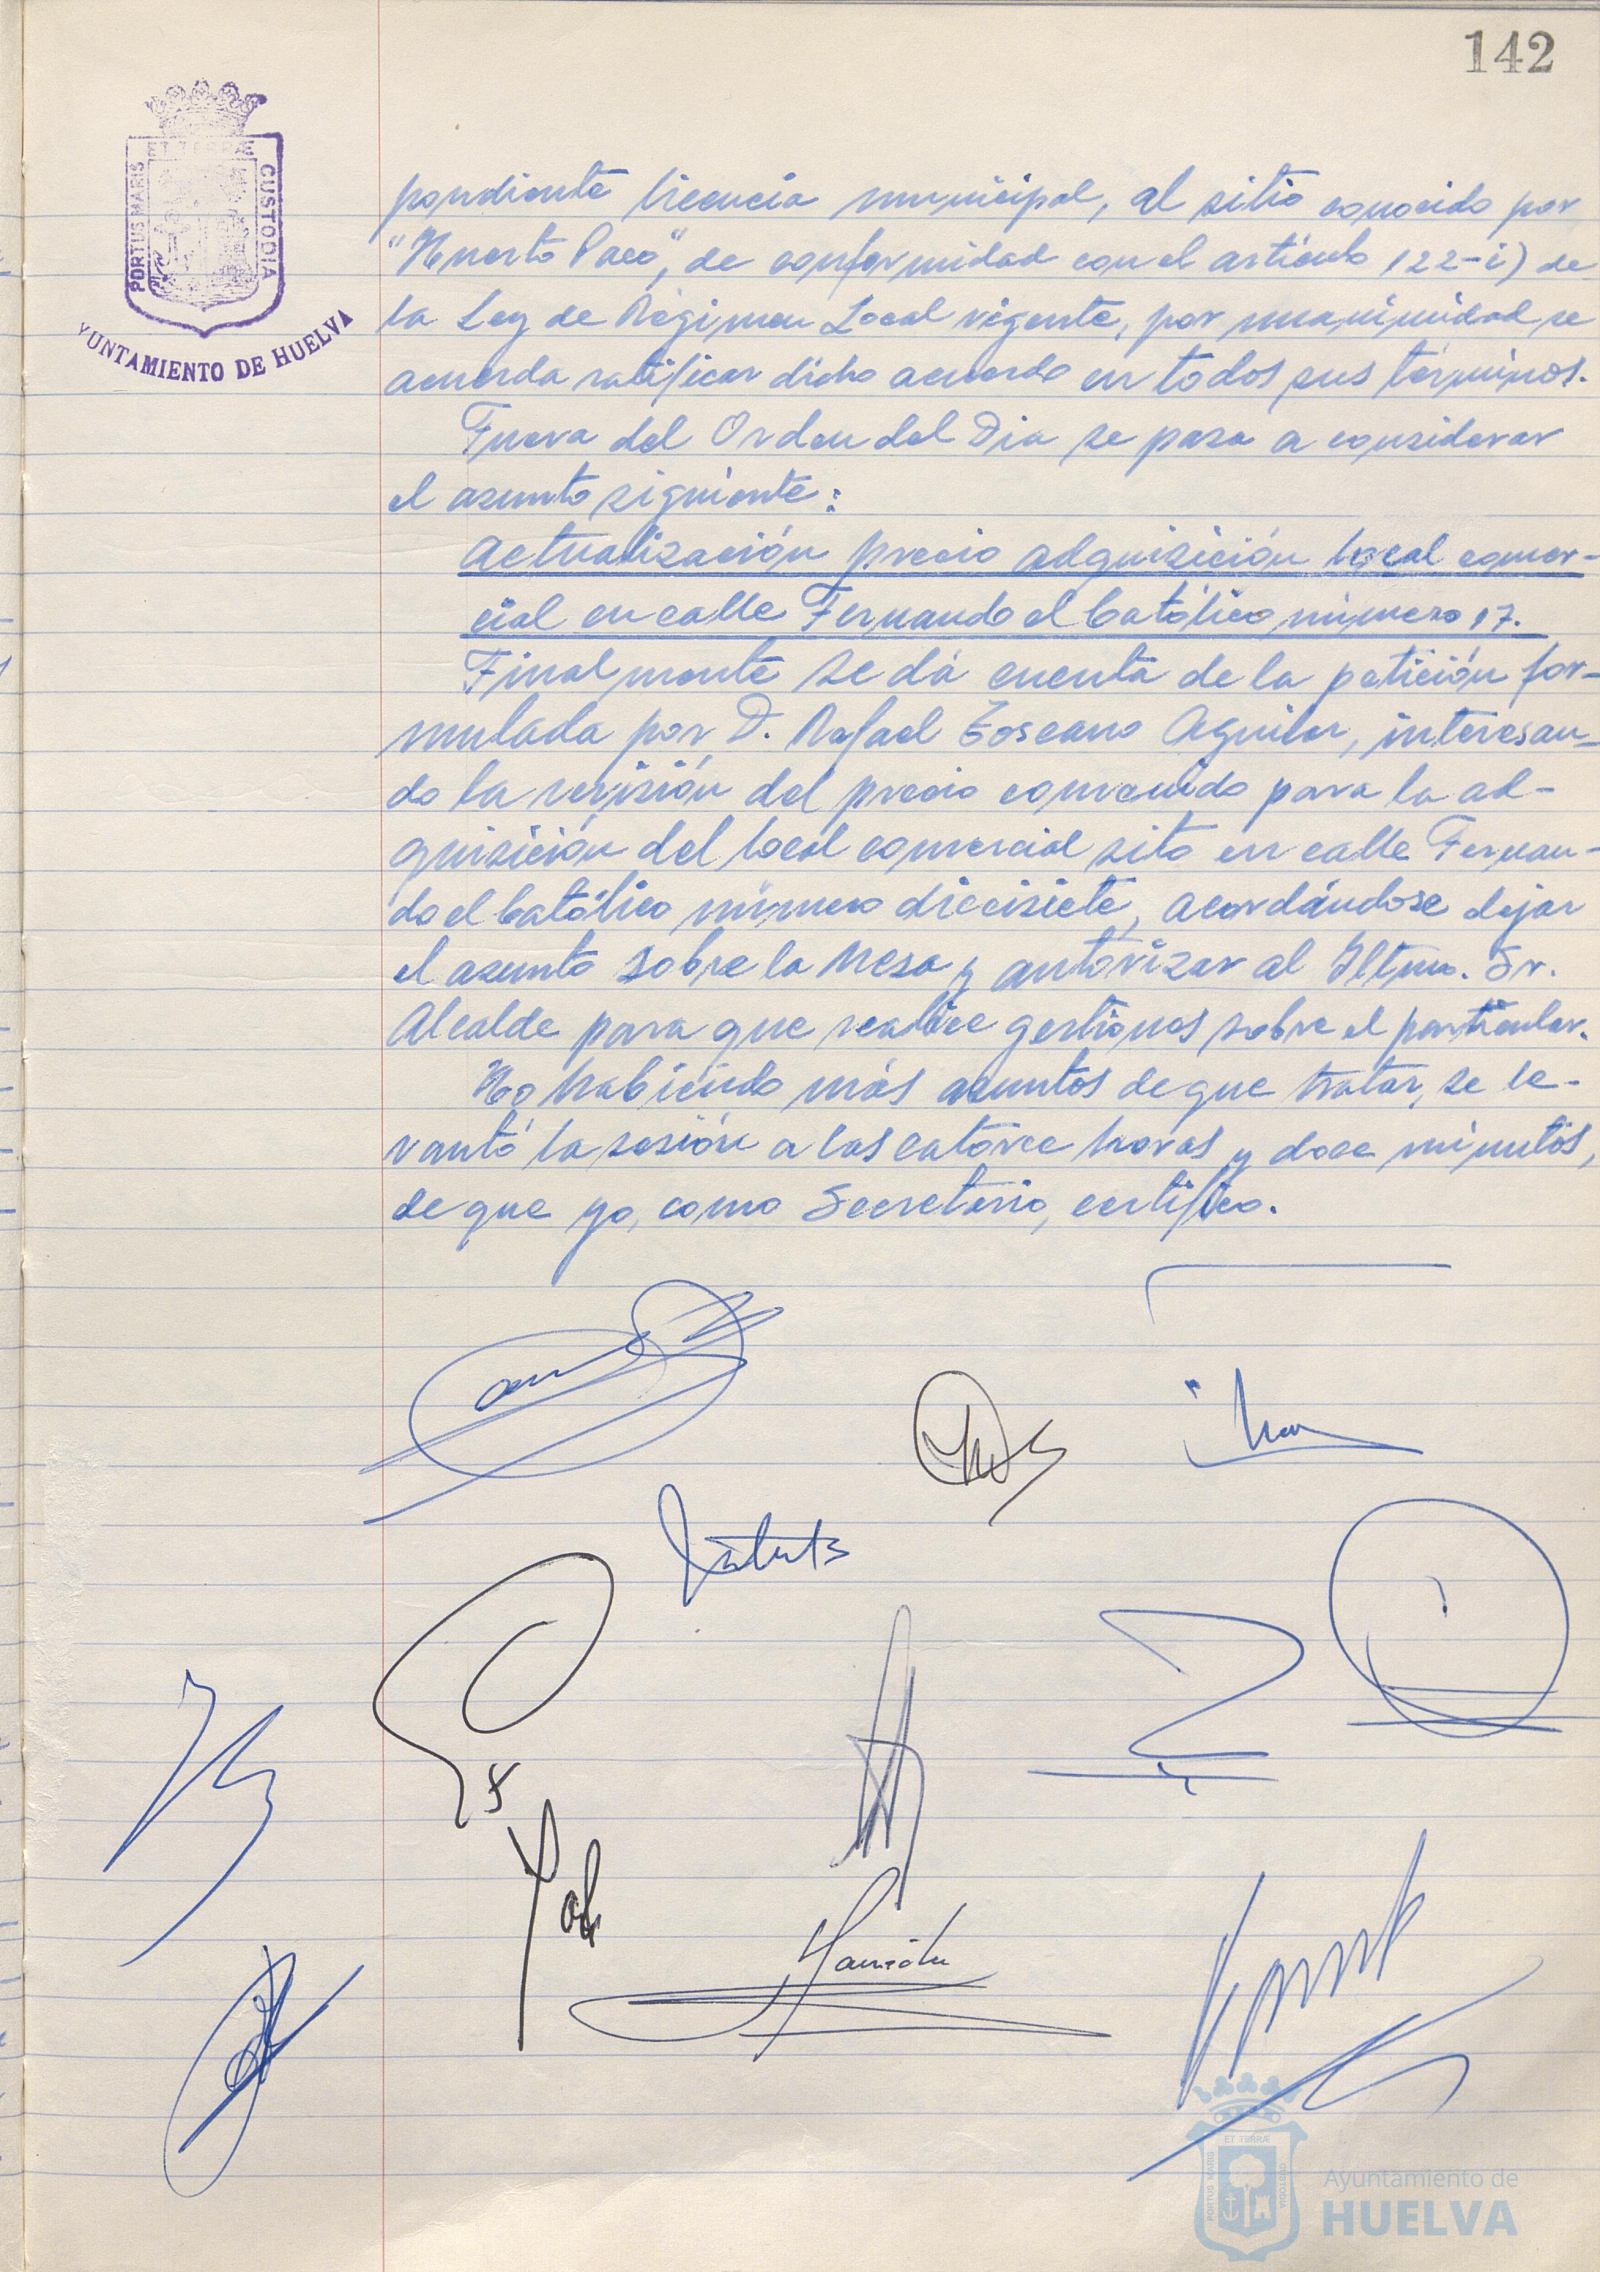 142
ET TERRÆ
PORTUS MARIS
CUSTODIA
YUNTAMIENTO DE HUELVA
pondiente licencia municipal, al sitio conocido por
"Huerto Paco", de conformidad con el artículo 122-i) de
la Ley de Régimen Local vigente, por unanimidad se
acuerda ratificar dicho acuerdo en todos sus términos.
Fuera del Orden del Dia se pasa a considerar
el asunto siguiente:
Actualización precio adquisición local comer-
cial en calle Fernando el Católico, número 17.
Finalmente se dá cuenta de la petición for-
mulada por D. Rafael Toscano Aguilar, interesan-
do la revisión del precio convenido para la ad-
quisición del local comercial sito en calle Fernan-
do el Católico número diecisiete, acordándose dejar
el asunto sobre la Mesa y autorizar al Iltmo. Sr.
Alcalde para que realice gestiones sobre el particular.
No habiendo más asuntos de que tratar, se le-
vantó la sesión a las catorce horas y doce minutos,
de que yo, como Secretario, certifico.
ET TERRÆ
PORTUS MARIS
CUSTODIA
Ayuntamiento de
HUELVA